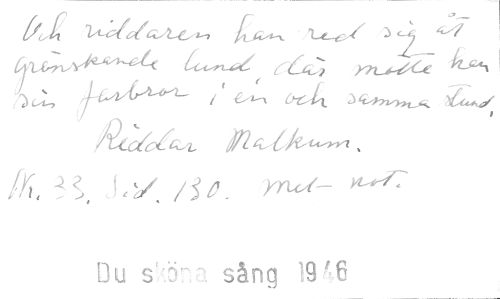 Och riddaren han red sig åt
grönskande lund, där mötte han
sin farbror i en och samma stund.
Riddar Malkum.
Nr. 33. Sid. 130. mel- not.
Du sköna sång 1946